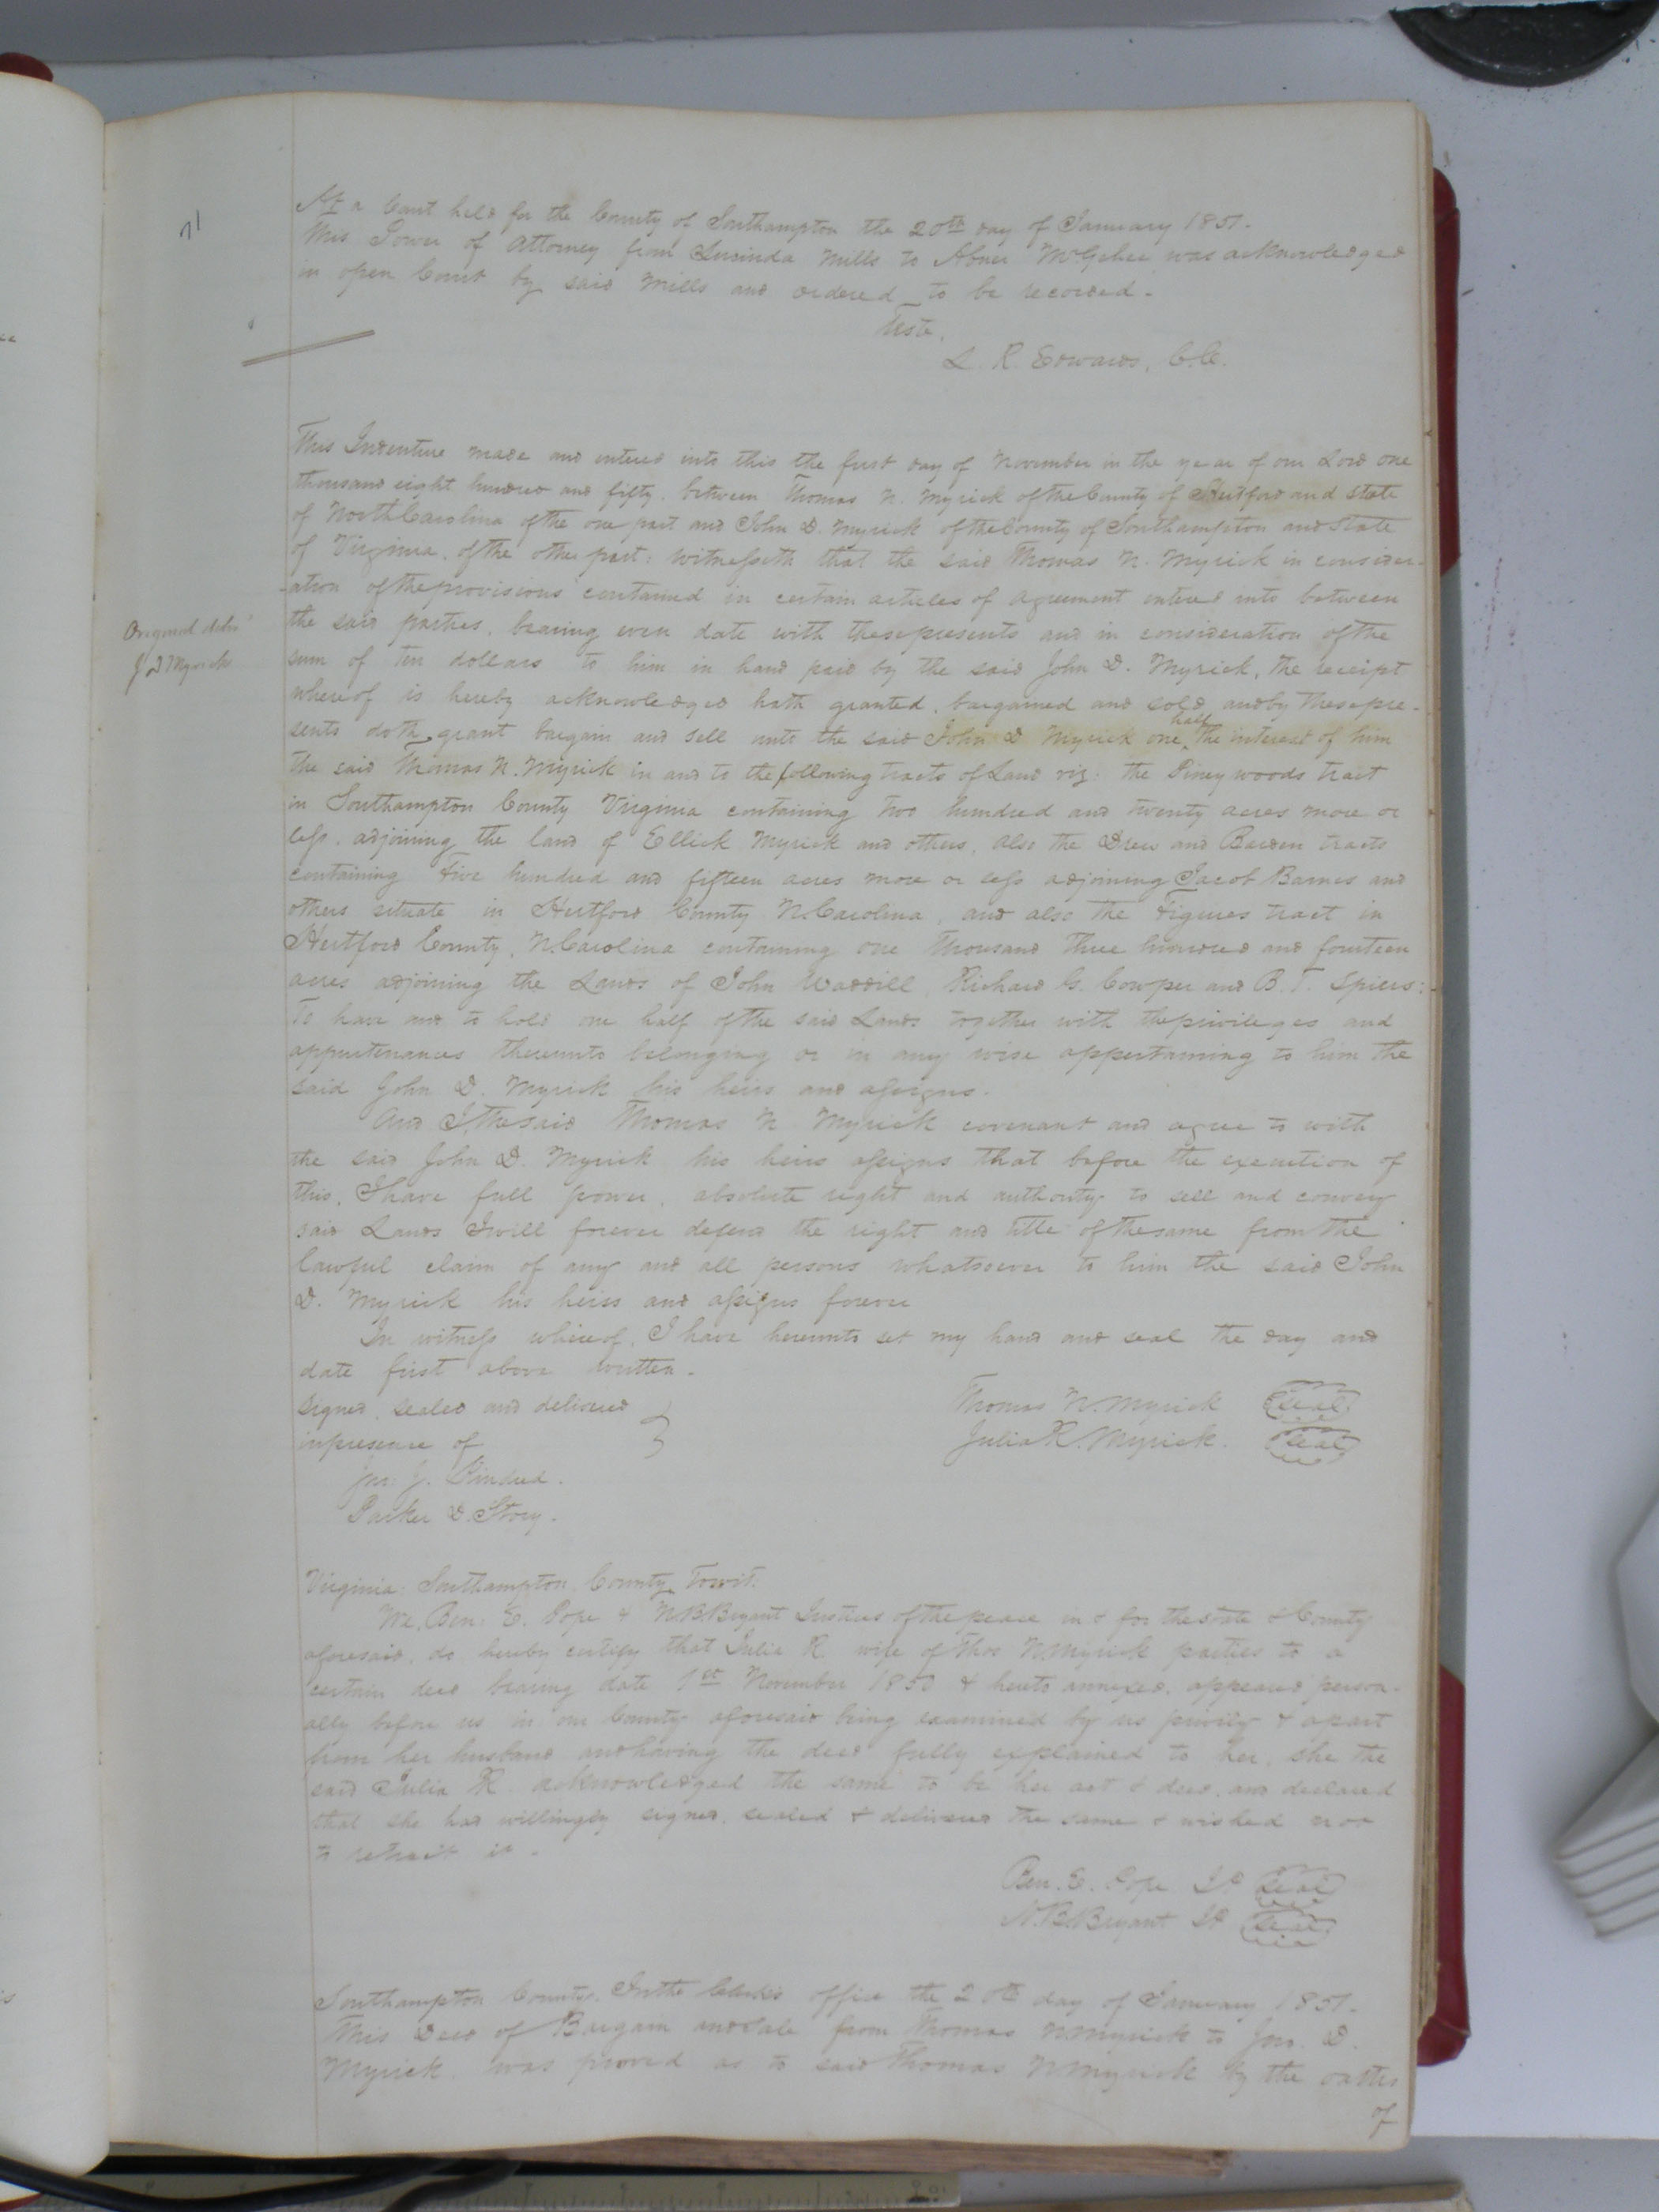 71
At a Court held for the County of Southampton the 20th day of January 1851.
This Power of Attorney from Lucinda Mills to Abner McGehee was acknowledged
in open Court by said Mills and ordered to be recorded.
Teste,
L. R. Edwards, C.C.
This Indenture made and entered into this the first day of November in the year of our Lord one
thousand eight hundred and fifty, between Thomas N. Myrick of the County of Hertford and State
of North Carolina of the one part and John D. Myrick of the County of Southampton and State
of Virginia, of the other part: witnesseth that the said Thomas N. Myrick in consider-
-ation of the provisions contained in certain articles of agreement entered into between
Original deliv'd
J D Myrick
the said parties, bearing even date with these presents and in consideration of the
sum of ten dollars to him in hand paid by the said John D. Myrick, the receipt
whereof is hereby acknowledged hath granted, bargained and sold, and by these pre-
sents doth grant bargain and sell unto the said John D Myrick one half the interest of him
the said Thomas N. Myrick in and to the following tracts of Land viz: the Piney woods tract
in Southampton County Virginia containing two hundred and twenty acres more or
less, adjoining the land of Ellick Myrick and others, also the Drew and Barden tracts
containing Five hundred and fifteen acres more or less adjoining Jacob Barnes and
others situate in Hertford County N. Carolina, and also the Figures tract in
Hertford County, N. Carolina containing one Thousand three hundred and fourteen
acres adjoining the Lands of John Waddill, Richard G. Cowper and B. T. Spiers:-
To have and to hold one half of the said Lands together with the privileges and
appurtenances thereunto belonging or in any wise appertaining to him the
said John D. Myrick his heirs and assigns.
And I, the said Thomas N Myrick covenant and agree to with
the said John D. Myrick his heirs assigns that before the execution of
this, I have full power, absolute right and authority to sell and convey
said Lands I will forever defend the right and title of the same from the
lawful claim of any and all persons whatsoever to him the said John
D. Myrick his heirs and assigns forever
In witness whereof, I have hereunto set my hand and seal the day and
date first above written.
Signed, sealed and delivered } Thomas N. Myrick (Seal)
in presence of Julia R. Myrick. (Seal)
Jno: J. Kindred.
Parker D. Story.
Virginia: Southampton County, Towit.
We, Ben: E. Pope & N.B. Bryant Justices of the peace in & for the state & County
aforesaid, do hereby certify that Julia R. wife of Thos N Myrick parties to a
certain deed bearing date 1st November 1850 & hereto annexed, appeared person-
ally before us in our County aforesaid being examined by us privily & apart
from her husband and having the deed fully explained to her, she the
said Julia R. acknowledged the same to be her act & deed, and declared
that she had willingly signed, sealed & delivered the same & wished not
to retract it.
Ben. E. Pope JP (Seal)
N.B. Bryant JP (Seal)
Southampton County. In the Clerk's office the 20th day of January 1851.
This Deed of Bargain and Sale from Thomas N Myrick to Jno. D.
Myrick, was proved as to said Thomas N Myrick by the oaths
of